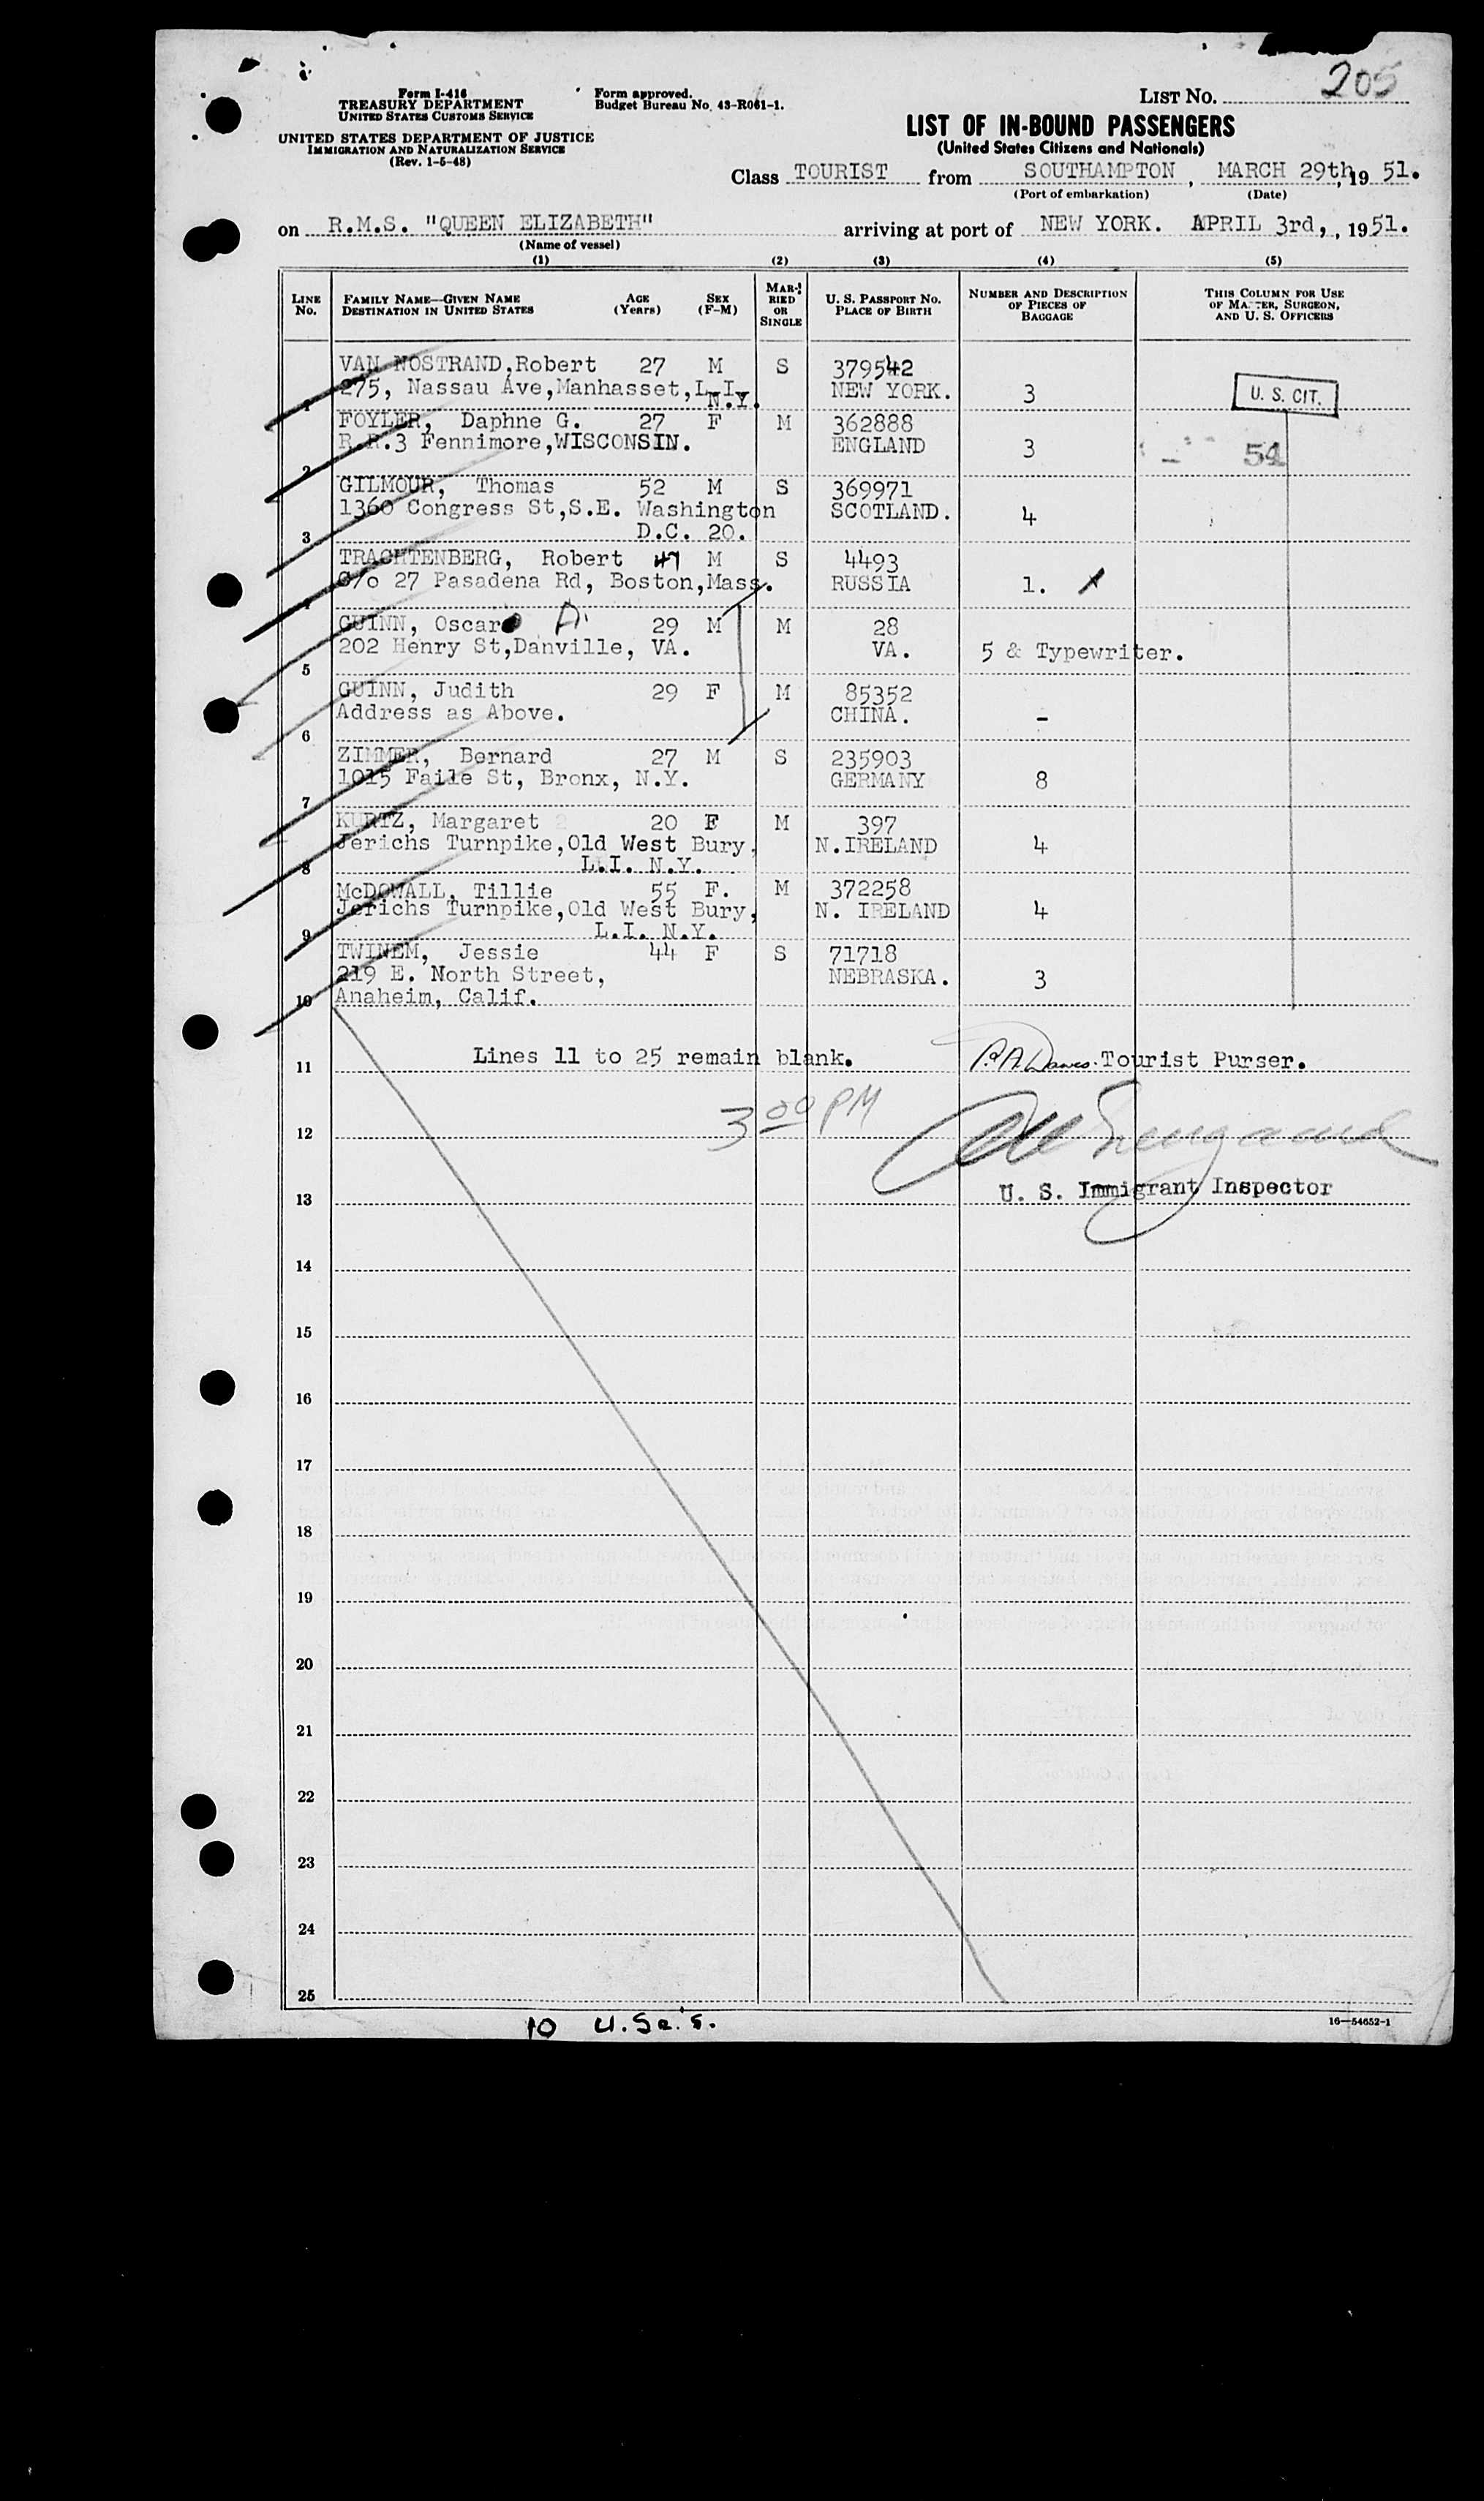 205
Form I-416
TREASURY DEPARTMENT
UNITED STATES CUSTOMS SERVICE
Form approved.
Budget Bureau No. 43-R061-1.
LIST NO.
UNITED STATES DEPARTMENT OF JUSTICE
IMMIGRATION AND NATURALIZATION SERVICE
(Rev. 1-5-48)
LIST OF IN-BOUND PASSENGERS
(United States Citizens and Nationals)
Class TOURIST from SOUTHAMPTON, MARCH 29th, 19 51.
(Port of embarkation) (Date)
on R.M.S. "QUEEN ELIZABETH" arriving at port of NEW YORK. APRIL 3rd, , 1951.
(Name of vessel)
(1) (2) (3) (4) (5)
LINE No. FAMILY NAME—GIVEN NAME DESTINATION IN UNITED STATES AGE (Years) SEX (F-M) MARRIED OR SINGLE U. S. PASSPORT NO. PLACE OF BIRTH NUMBER AND DESCRIPTION OF PIECES OF BAGGAGE THIS COLUMN FOR USE OF MASTER, SURGEON, AND U. S. OFFICERS
VAN NOSTRAND, Robert 27 M S 379542
1 275, Nassau Ave, Manhasset, L.I. N.Y. NEW YORK. 3 U. S. CIT.
FOYLER, Daphne G. 27 F M 362888
2 R.R.3 Fennimore, WISCONSIN. ENGLAND 3 54
GILMOUR, Thomas 52 M S 369971
1360 Congress St, S.E. Washington SCOTLAND. 4
3 D.C. 20.
TRACHTENBERG, Robert 47 M S 4493
4 C/o 27 Pasadena Rd, Boston, Mass. RUSSIA 1. X
GUINN, Oscar A. 29 M M 28
5 202 Henry St, Danville, VA. VA. 5 & Typewriter.
GUINN, Judith 29 F M 85352
6 Address as Above. CHINA. -
ZIMMER, Bernard 27 M S 235903
7 1015 Faile St, Bronx, N.Y. GERMANY 8
KURTZ, Margaret 20 F M 397
Jerichs Turnpike, Old West Bury, N.IRELAND 4
8 L.I. N.Y.
McDOWALL, Tillie 55 F. M 372258
Jerichs Turnpike, Old West Bury, N. IRELAND 4
9 L.I. N.Y.
TWINEM, Jessie 44 F S 71718
219 E. North Street, NEBRASKA. 3
10 Anaheim, Calif.
11 Lines 11 to 25 remain blank. Tourist Purser.
12 3 00 PM
13 U. S. Immigrant Inspector
14
15
16
17
18
19
20
21
22
23
24
25
10 U.Sc.'s.
16—54652-1